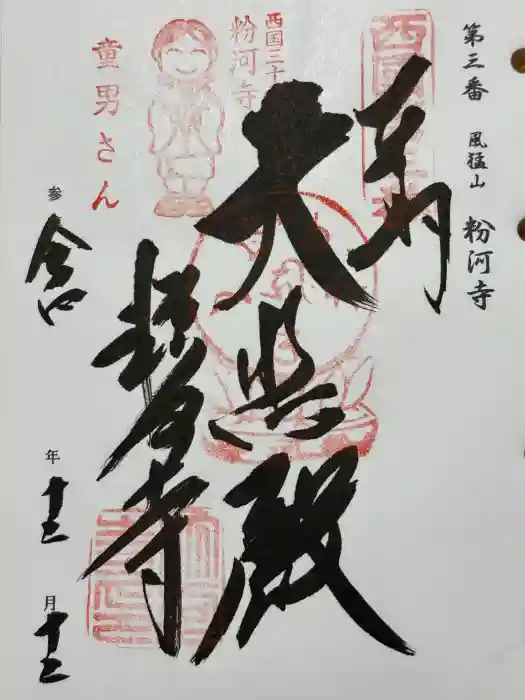 第三番 風猛山 粉河寺
奉拝
西国三十
粉河寺
大悲殿
童男さん
粉河寺
参
令和
年
月